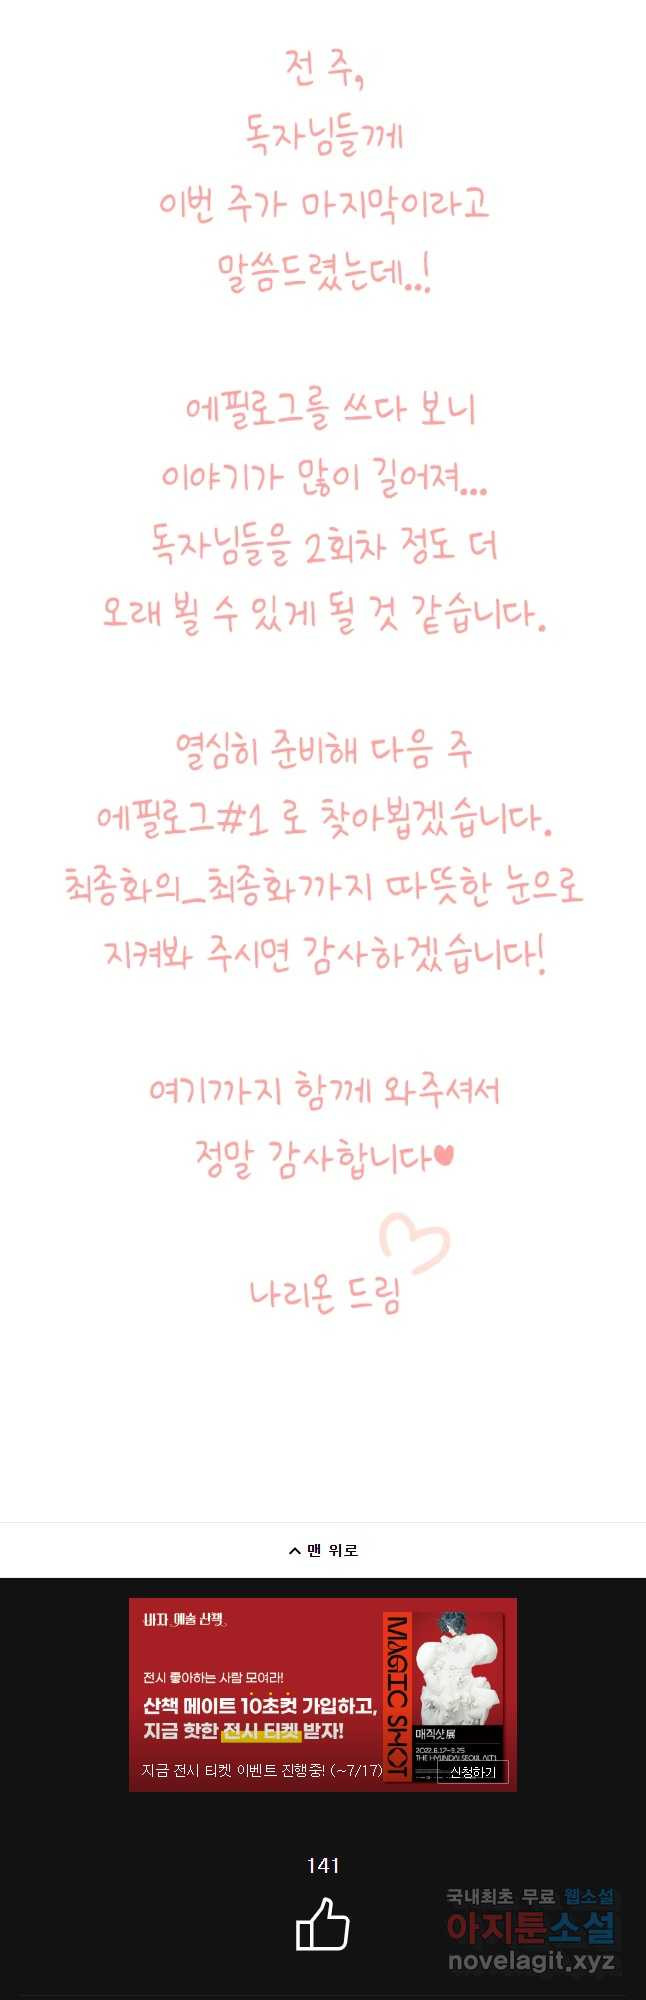 전 주,
독자님들께
이번 주가 마지막이라고
말씀드렸는데..!
에필로그를 쓰다 보니
이야기가 많이 길어져...
독자님들을 2회차 정도 더
오래 뵐 수 있게 될 것 같습니다.
열심히 준비해 다음 주
에필로그#1 로 찾아뵙겠습니다.
최종화의_최종화까지 따뜻한 눈으로
지켜봐 주시면 감사하겠습니다!
여기까지 함께 와주셔서
정말 감사합니다♥
나리온 드림
맨 위로
바자 예술 산책
전시 좋아하는 사람 모여라!
산책 메이트 10초컷 가입하고,
지금 핫한 전시 티켓 받자!
지금 전시 티켓 이벤트 진행중! (~7/17)
MAGIC SHOT
매직샷展
2022.6.17-8.25
THE HYUNDAI SEOUL ALT.1
신청하기
141
국내최초 무료 웹소설
아지툰소설
novelagit.xyz